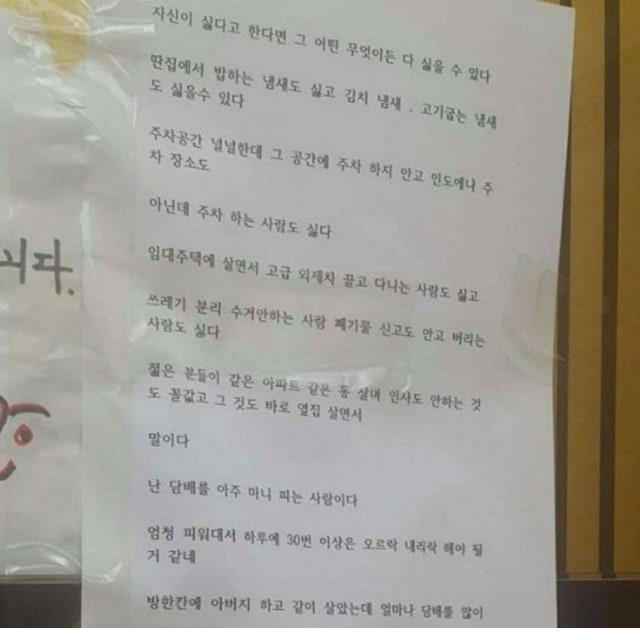 자신이 싫다고 한다면 그 어떤 무엇이든 다 싫을 수 있다
딴집에서 밥하는 냄새도 싫고 김치 냄새 . 고기굽는 냄새
도 싫을수 있다
주차공간 널널한데 그 공간에 주차 하지 안고 인도에나 주
차 장소도
아닌데 주차 하는 사람도 싫다
임대주택에 살면서 고급 외제차 끌고 다니는 사람도 싫고
쓰레기 분리 수거안하는 사람 폐기물 신고도 안고 버리는
사람도 싫다
젊은 분들이 같은 아파트 같은 동 살며 인사도 안하는 것
도 꼴값고 그 것도 바로 옆집 살면서
말이다
난 담배를 아주 마니 피는 사람이다
엄청 피워대서 하루에 30번 이상은 오르락 내리락 해야 될
거 같네
방한칸에 아버지 하고 같이 살았는데 얼마나 담배를 많이
니다.